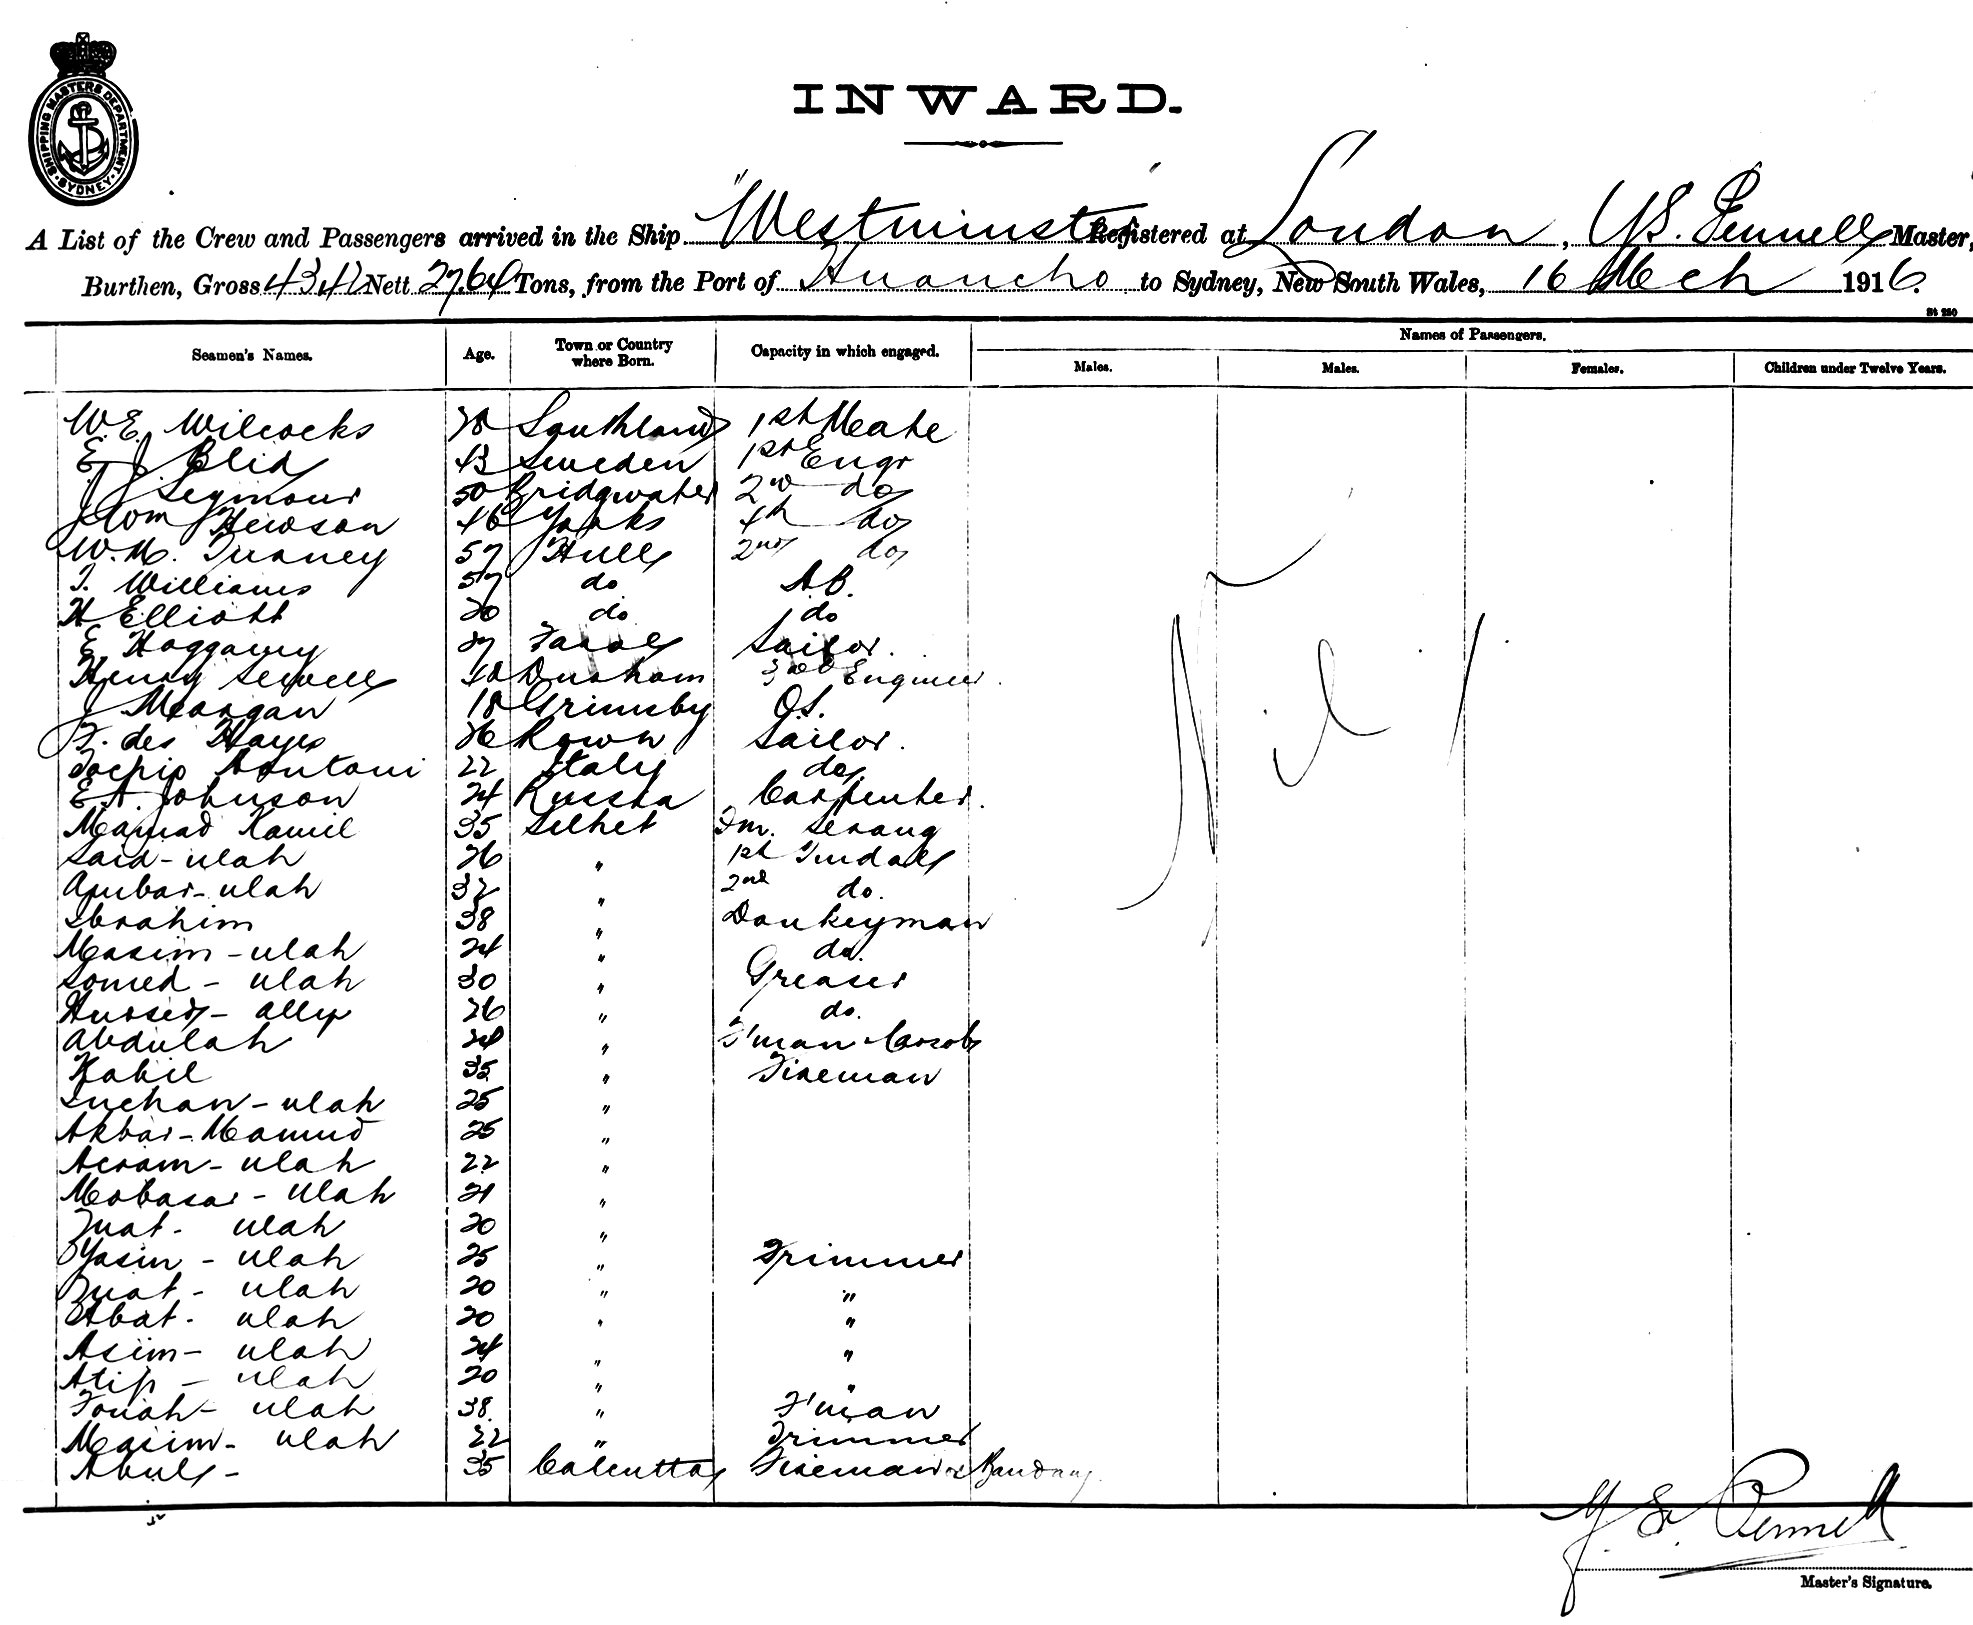 SHIPPING MASTERS DEPARTMENT SYDNEY
INWARD.
A List of the Crew and Passengers arrived in the Ship "Westminster" Registered at London, Y.S. Pennell Master,
Burthen, Gross 4341 Nett 2764 Tons, from the Port of Huancho to Sydney, New South Wales, 16 Mch 1916.
St 250
Seamen's Names. Age. Town or Country where Born. Capacity in which engaged. Names of Passengers.
Males. Males. Females. Children under Twelve Years.
W.E. Wilcocks 28 1st Mate
E J Blid 43 Sweden 1st Engr
J Seymour 50 Bridgwater 2nd do
Wm Hewson 46 Yorks 4th do
W.M. Turney 57 Hull 2nd do
T. Williams 57 do A.B.
H Elliott 20 do do
E Haggarny 27 Sailor.
Henry Sewell Durham 3rd Engineer.
J Morgan 18 Grimsby O.S.
F. des Hayes 26 Rown Sailor.
22 Italy do
E.A. Johnson 24 Russia Carpenter.
Mamad Kamil 35 Silhet Fm. Serang
Said-ulah 26 " 1st Tindall
Ambar-ulah 32 " 2nd do.
Ibrahim 38 " Donkeyman
Masim-ulah 24 " do.
Somed-ulah 30 " Greaser
Hussed-ally 26 " do.
Abdulah 24 " F'man Cassob
Kabil 35 " Fireman
Luchan-ulah 25 "
Akbar-Mamud 25 "
Acram-ulah 22 "
Mobasar-ulah 21 "
Tuat-ulah 20 "
Yasin-ulah 25 " Trimmer
Zuat-ulah 20 " "
Abat-ulah 20 " "
Asim-ulah 24 " "
Atip-ulah 20 " "
Tonah-ulah 38 " F'man
Masim-ulah 22 " Trimmer
Abul- 35 Calcutta Fireman & Bandary
Nil
Y. S. Pennell
Master's Signature.